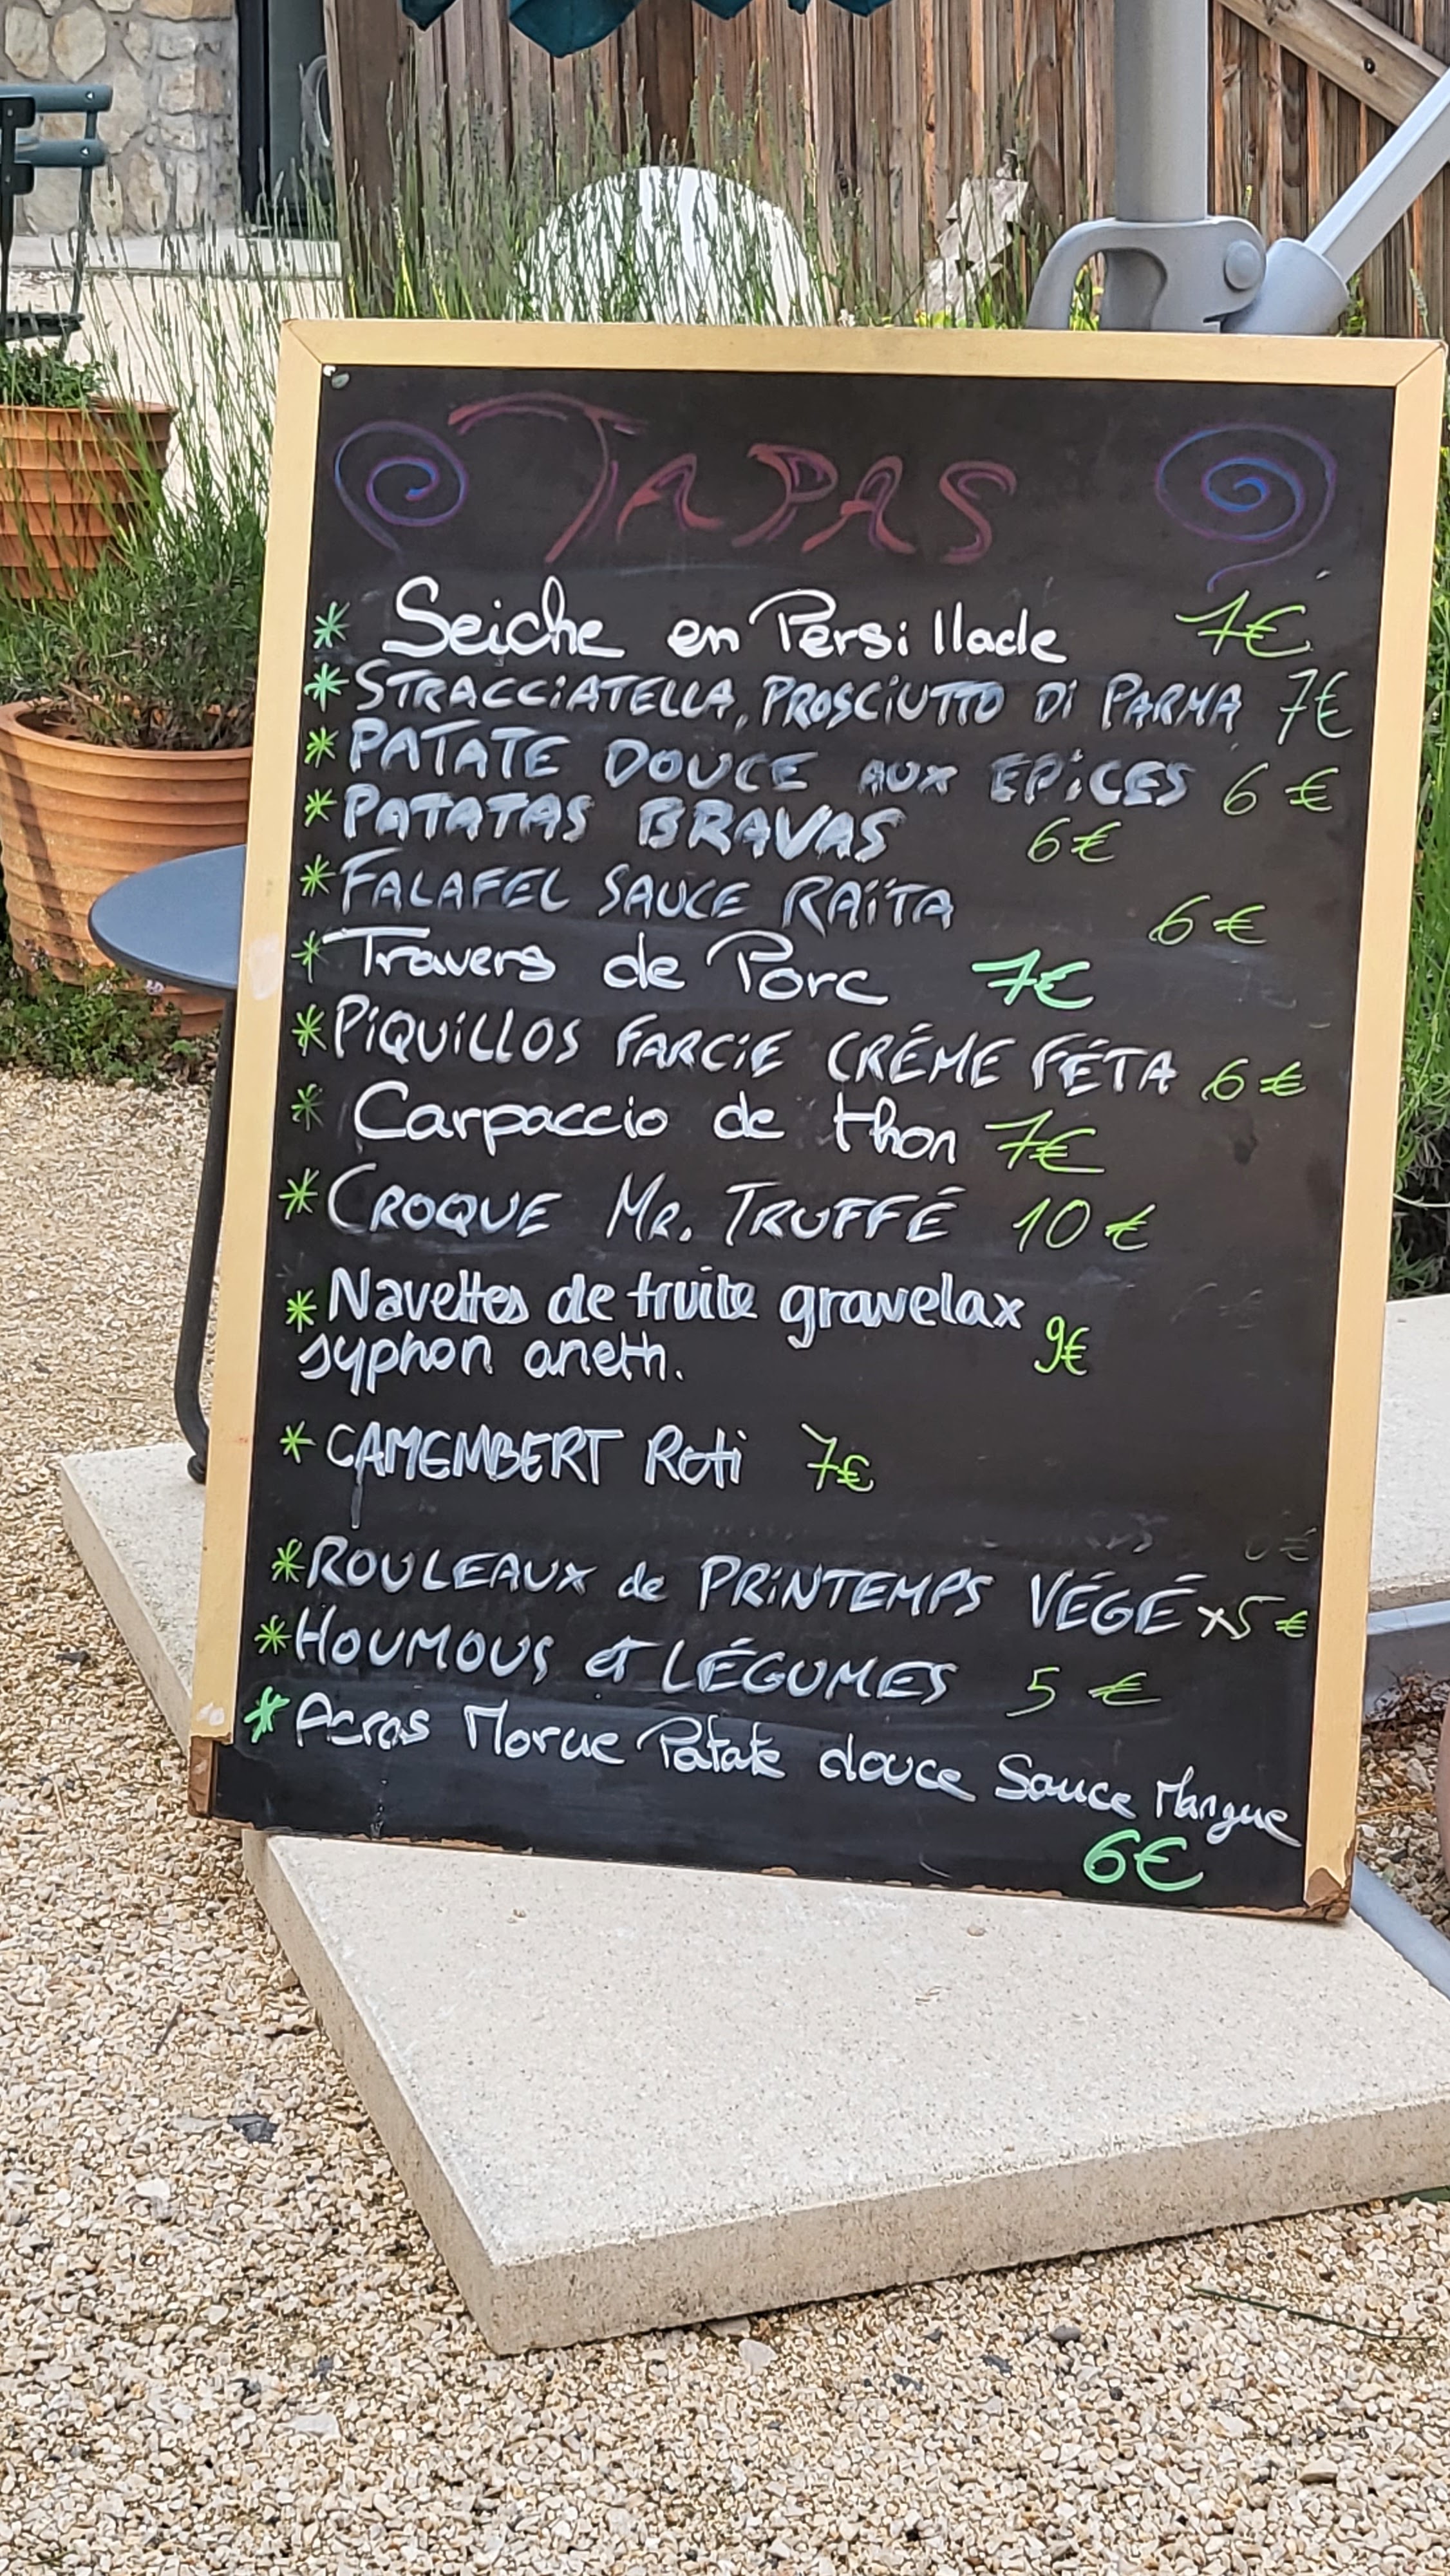 TAPAS
* Seiche en Persillade 7€
* STRACCIATELLA, PROSCIUTTO DI PARMA 7€
* PATATE DOUCE AUX EPICES 6 €
* PATATAS BRAVAS 6€
* FALAFEL SAUCE RAÏTA 6€
* Travers de Porc 7€
* PIQUILLOS FARCIE CRÉME FÉTA 6€
* Carpaccio de thon 7€
* CROQUE MR. TRUFFÉ 10€
* Navettes de truite gravelax 9€
syphon aneth.
* CAMEMBERT Roti 7€
* ROULEAUX de PRINTEMPS VÉGÉ x5 €
* HOUMOUS & LÉGUMES 5 €
* Acras Morue Patate douce Sauce Mangue
6€